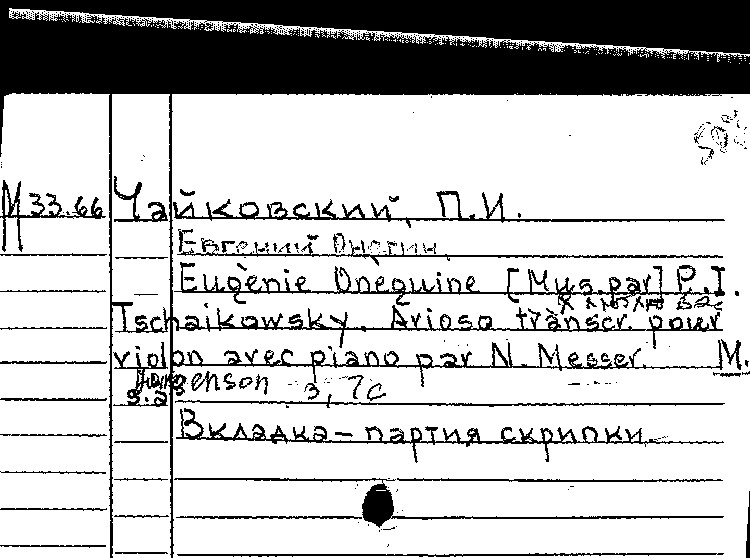 М 33.66 Чайковский, П.И.
Евгений Онегин.
Eugènie Onèguine [Mus. par] P.I.
Я люблю вас
Tschaikowsky. Arioso transcr. pour
violon avec piano par N. Messer. M.
s.a. 3, 7с
Вкладка – партия скрипки.